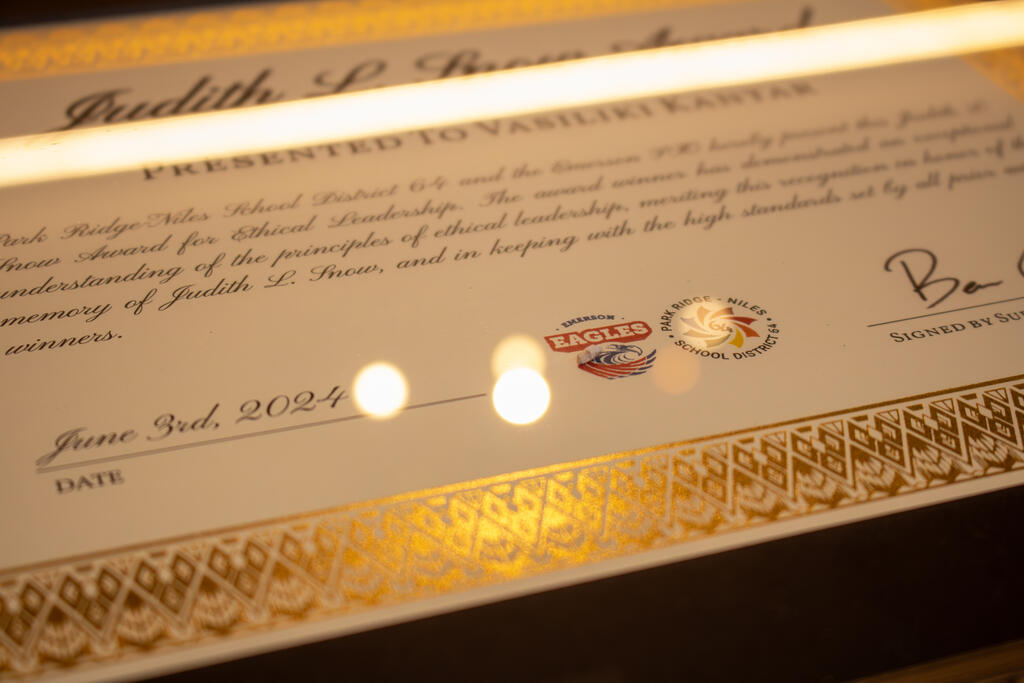 Judith L. Snow Award
PRESENTED TO VASILIKI KANTAR
Park Ridge-Niles School District 64 and the Emerson PTO hereby present this Judith L.
Snow Award for Ethical Leadership. The award winner has demonstrated an exceptional
understanding of the principles of ethical leadership, meriting this recognition in honor of the
memory of Judith L. Snow, and in keeping with the high standards set by all prior
winners.
June 3rd, 2024
DATE
EMERSON
EAGLES
PARK RIDGE - NILES
64
SCHOOL DISTRICT 64
Ben
SIGNED BY